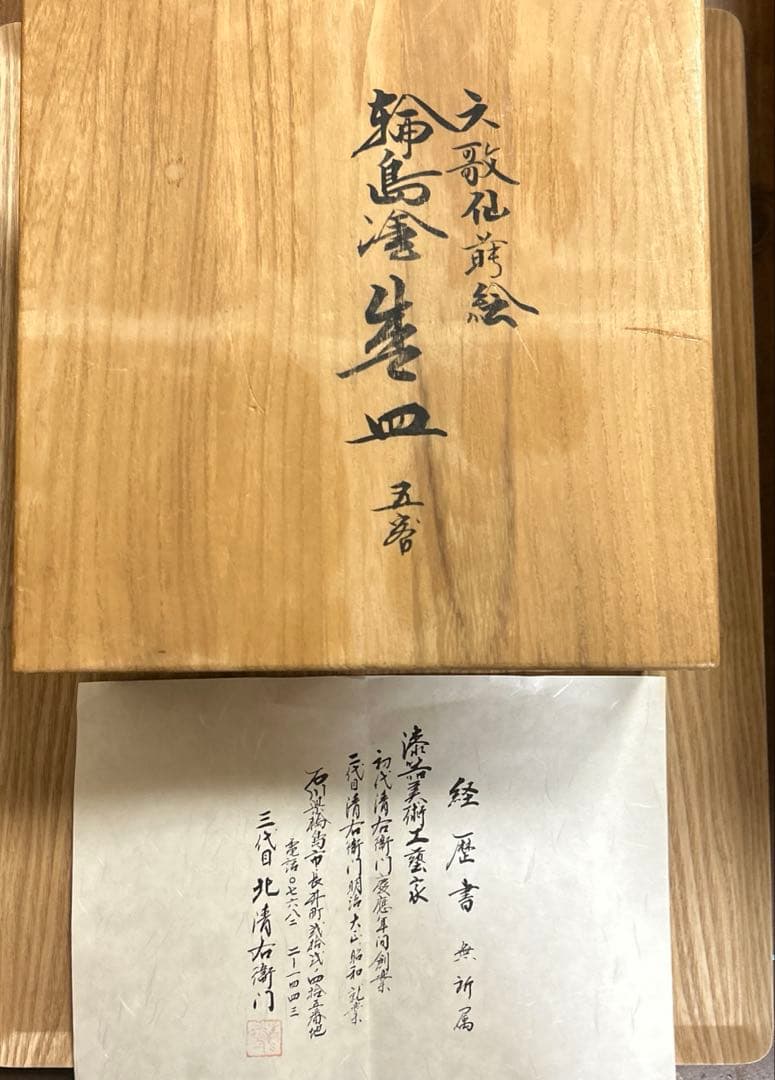 六歌仙蒔絵
輪島塗 盛皿
五客
経歴書 無所属
漆器美術工藝家
初代清右衛門慶應年间創業
二代目清右衛門明治大正昭和
石川県輪島市長井町弐拾弐ノ四拾五番地
電話〇七六八二 二ー一四四三
三代目 北清右衛門